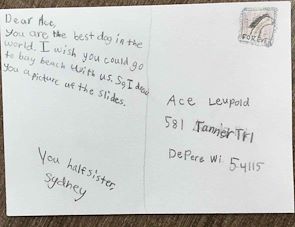 Dear Ace,
You are the best dog in the
world. I wish you could go
to bay beach with us. So I drew
you a picture of the slides.
You half sister,
Sydney
FOREVER
Ace Leupold
581 Tanner Trl
DePere Wi 54115